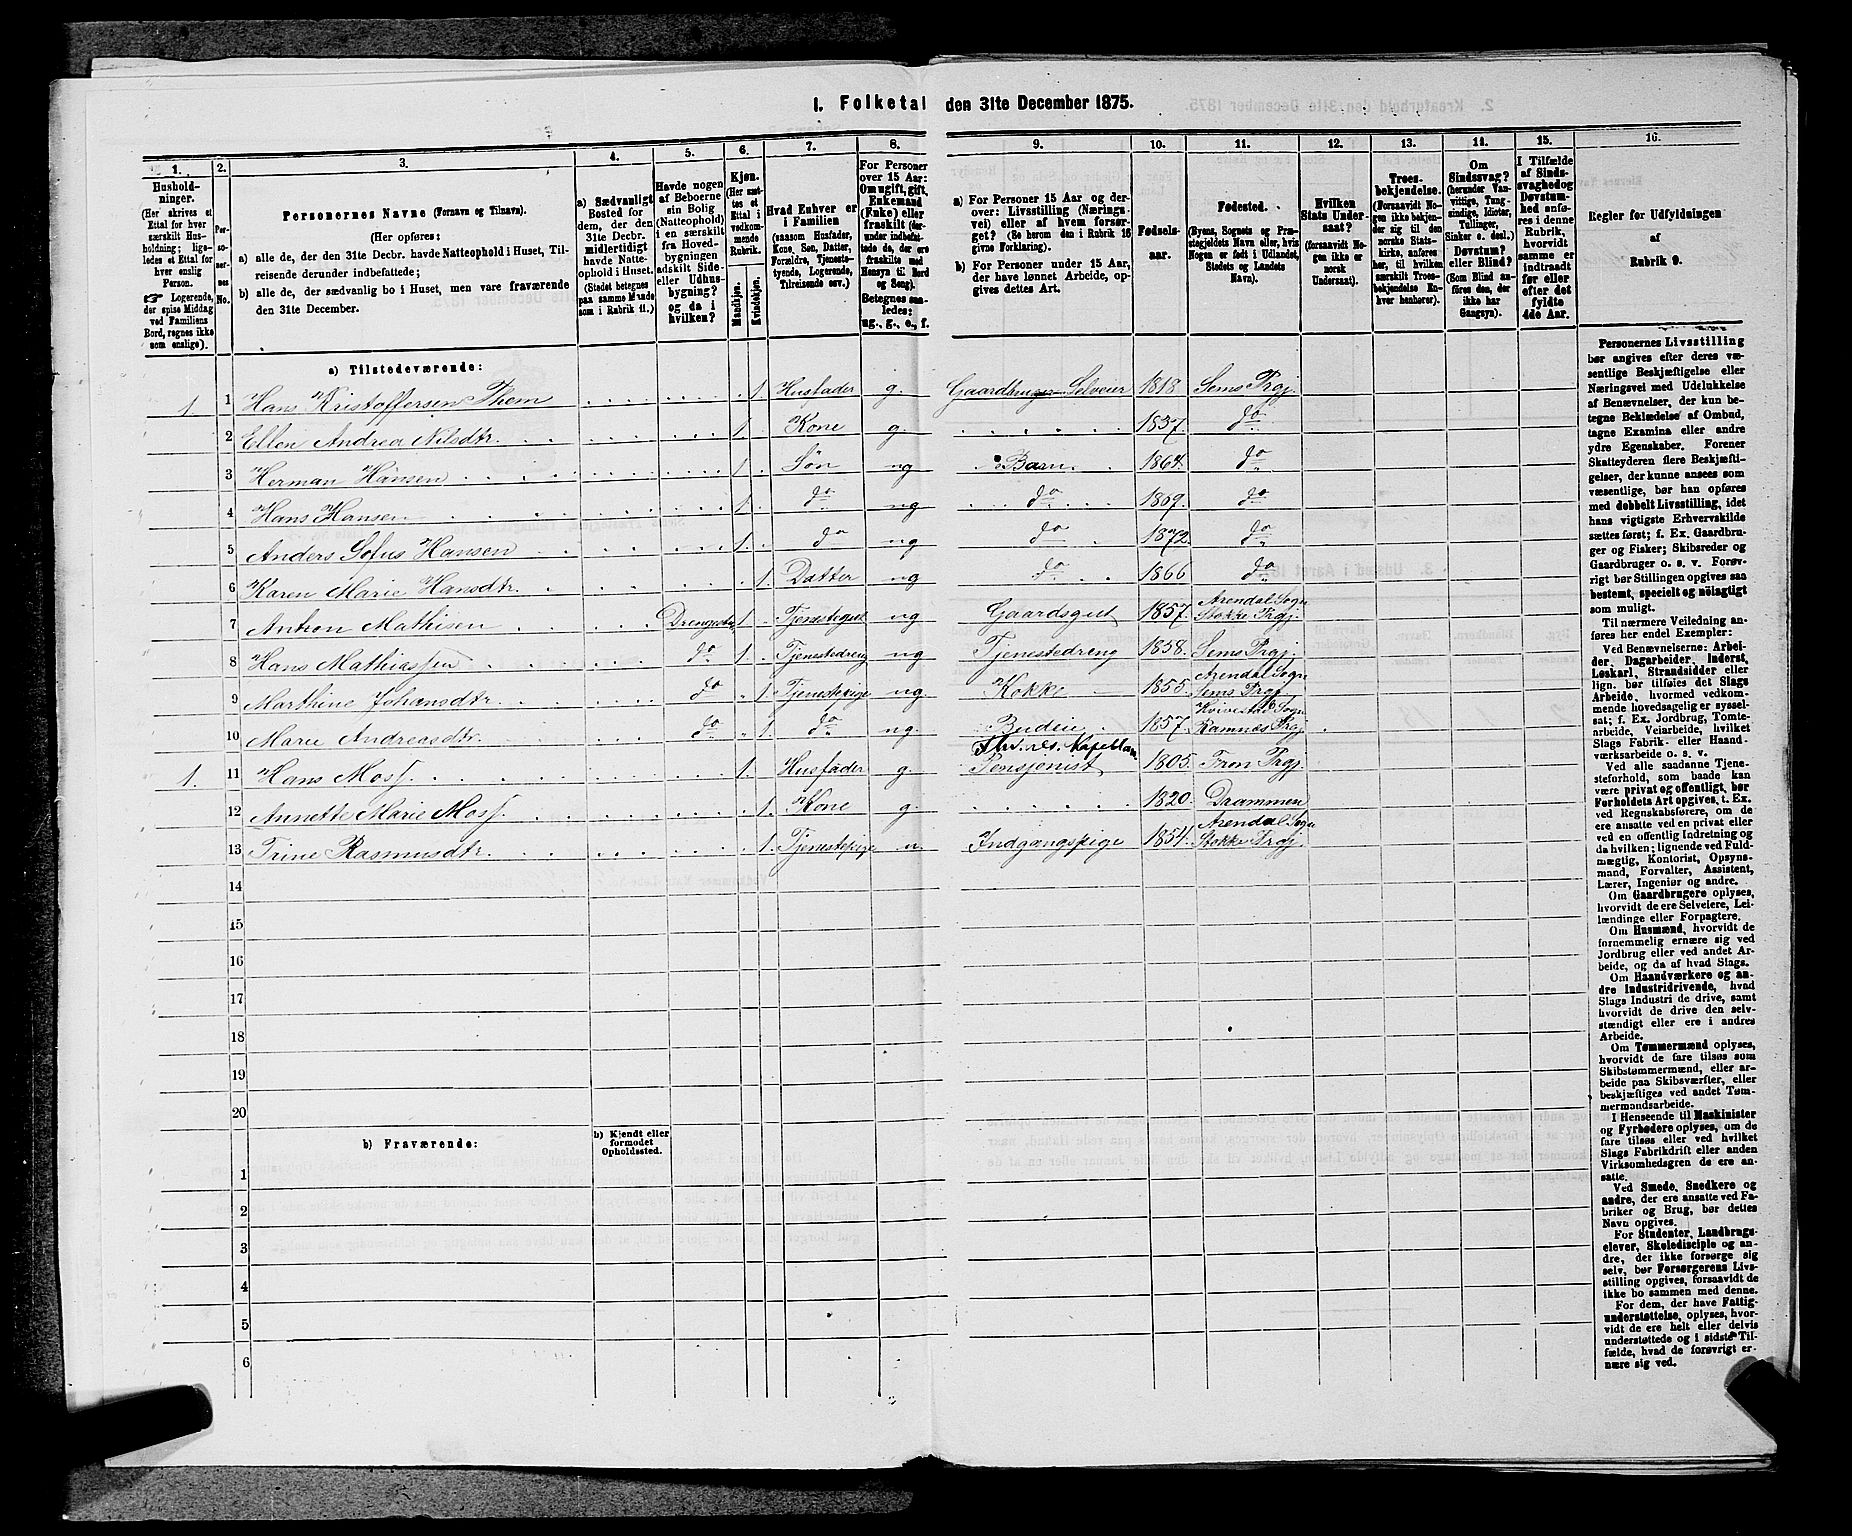 1. Folketal den 31te December 1875.
1. 2. 3. 4. 5. 6. 7. 8. 9. 10. 11. 12. 13. 14. 15. 16.
Hushold-
ninger.
(Her skrives et
Ettal for hver
særskilt Hus-
holdning; lige-
ledes et Ettal for
hver enslig
Person.
☞ Logerende,
der spise Middag
ved Familiens
Bord, regnes ikke
som enslige).
Per-
so-
ner-
nes
No.
Personernes Navne (Fornavn og Tilnavn).
(Her opføres:
a) alle de, der den 31te Decbr. havde Natteophold i Huset, Til-
reisende derunder indbefattede;
b) alle de, der sædvanlig bo i Huset, men vare fraværende
den 31te December.
a) Sædvanligt
Bosted for
dem, der den
31te Decbr.
midlertidigt
havde Natte-
ophold i Huset.
(Stedet betegnes
paa samme Maade
som i Rubrik 11.)
Havde nogen
af Beboerne
sin Bolig
(Natteophold)
i en særskilt
fra Hoved-
bygningen
adskilt Side-
eller Udhus-
bygning?
og da i
hvilken?
Kjøn.
(Her sæt-
tes et
Ettal i
vedkom-
mende
Rubrik.
Mandkjøn.
Kvindekjøn.
Hvad Enhver er
i Familien
(saasom Husfader,
Kone, Søn, Datter,
Forældre, Tjeneste-
tyende, Logerende,
Tilreisende osv.)
For Personer
over 15 Aar:
Om ugift, gift,
Enkemand
(Enke) eller
fraskilt (der-
under indbefat-
tede de, der ere
fraskilte med
Hensyn til Bord
og Seng).
Betegnes saa-
ledes:
ug., g., e., f.
a) For Personer 15 Aar og der-
over: Livsstilling (Nærings-
vei) eller af hvem forsør-
get? (Se herom den i Rubrik 16
givne Forklaring).
b) For Personer under 15 Aar,
der have lønnet Arbeide, op-
gives dettes Art.
Fødsels-
aar.
Fødested.
(Byens, Sognets og Præ-
stegjeldets Navn eller, hvis
Nogen er født i Udlandet,
Stedets og Landets
Navn).
Hvilken
Stats Under-
saat?
(forsaavidt No-
gen ikke er
norsk
Undersaat).
Troes-
bekjendelse.
(Forsaavidt No-
gen ikke bekjen-
der sig til den
norske Stats-
kirke, anføres
her, til hvilken
særskilt Troes-
bekjendelse En-
hver henhører).
Om
Sindssvag?
(herunder Van-
vittige, Tung-
sindige, Idioter,
Tullinger,
Sinker o. desl.)
Døvstum?
eller Blind?
(Som Blind an-
føres den, der
ikke har
Gangsyn).
I Tilfælde
af Sinds-
svaghed og
Døvstum-
hed anfø-
res i denne
Rubrik,
hvorvidt
samme er
indtraadt
før eller
efter det
fyldte
4de Aar.
Regler for Udfyldningen
af
Rubrik 9.
a) Tilstedeværende:
1 1 Hans Kristoffersen Them 1. Husfader g. Gaardbruger Selveier 1818. Sems Prgj.
2 Ellen Andrea Nilsdtr. 1 Kone g. 1837. do
3 Herman Hansen 1 Søn ug Barn 1864. do
4 Hans Hansen 1 do ug do 1869. do
5 Anders Sofus Hansen 1 do ug do 1872 do
6 Karen Marie Hansdtr. 1. Datter ug do 1866 do
7 Antron Mathisen Drengestu 1 Tjenestegut ug Gaardsgut 1857. Arendal Sogn Stokke Prgj.
8 Hans Mathiassen do 1. Tjenestedreng ug Tjenestedreng 1858. Sems Prgj.
9 Marthine Johansdtr. do 1 Tjenestepige ug. Kokke 1855. Arendal Sogn Sems Prgj.
10 Marie Andreasdtr. do 1 do ug. Budeie 1857. Kvivestad Sogn Ramnæs Prgj.
1. 11 Hans Moss. 1. Husfader g. Pensjonist 1805. Fron Prgj.
12 Annette Marie Moss. 1. Kone g. 1820. Drammen
13 Trine Rasmusdtr. 1. Tjenestepige u. Indgangspige 1854. Arendal Sogn Stokke Prgj.
14
15
16
17
18
19
20
b) Fraværende:
b) Kjendt eller
formodet
Opholdssted.
1
2
3
4
5
6
Personernes Livsstilling
bør angives efter deres væ-
sentlige Beskjæftigelse eller
Næringsvei med Udelukkelse
af Benævnelser, der kun be-
tegne Beklædelse af Ombud,
tagne Examina eller andre
ydre Egenskaber. Forener
Skatteyderen flere Beskjæfti-
gelser, der kunne ansees som
væsentlige, bør han opføres
med dobbelt Livsstilling, idet
hans vigtigste Erhvervskilde
sættes først; f. Ex. Gaardbru-
ger og Fisker; Skibsreder og
Gaardbruger o. s. v. Forøv-
rigt bør Stillingen opgives saa
bestemt, specielt og nøiagtigt
som muligt.
Til nærmere Veiledning an-
føres her endel Exempler:
Ved Benævnelserne: Arbei-
der, Dagarbeider, Inderst,
Løskarl, Strandsidder eller
lign. bør tilføies det Slags
Arbeide, hvormed vedkom-
mende hovedsagelig er syssel-
sat; f. Ex. Jordbrug, Tomte-
arbeide, Veiarbeide, hvilket
Slags Fabrik- eller Haand-
værksarbeide o. s. v.
Ved alle saadanne Tjene-
steforhold, som baade kan
være privat og offentligt, bør
Forholdets Art opgives, t. Ex.
ved Regnskabsførere, om de
ere ansatte ved en privat eller
ved en offentlig Indretning og
da hvilken; lignende ved Fuld-
mægtig, Kontorist, Opsyns-
mand, Forvalter, Assistent,
Lærer, Ingeniør og andre.
Om Gaardbrugere oplyses,
hvorvidt de ere Selveiere, Lei-
lændinge eller Forpagtere.
Om Husmænd, hvorvidt de
fornemmelig ernære sig ved
Jordbrug eller ved andet Ar-
beide, og da af hvad Slags.
Om Haandværkere og an-
dre Industridrivende, hvad
Slags Industri de drive, samt
hvorvidt de drive den selv-
stændigt eller ere i andres
Arbeide.
Om Tømmermænd oplyses,
hvorvidt de fare tilsøs som
Skibstømmermænd, eller ar-
beide paa Skibsværfter, eller
beskjæftiges ved andet Tøm-
mermandsarbeide.
I Henseende til Maskinister
og Fyrbødere oplyses, om de
fare tilsøs eller ved hvilket
Slags Fabrikdrift eller anden
Virksomhedsgren de ere an-
satte.
Ved Smede, Snedkere og
andre, der ere ansatte ved Fa-
briker og Brug, bør dettes
Navn opgives.
For Studenter, Landbrugs-
elever, Skoledisciple og an-
dre, der ikke forsørge sig
selv, bør Forsørgerens Livs-
stilling opgives, forsaavidt de
ikke bo sammen med denne.
For dem, der have Fattig-
understøttelse, oplyses, hvor-
vidt de ere helt eller delvis
understøttede og i sidste Til-
fælde, hvad de forøvrigt er-
nære sig ved.